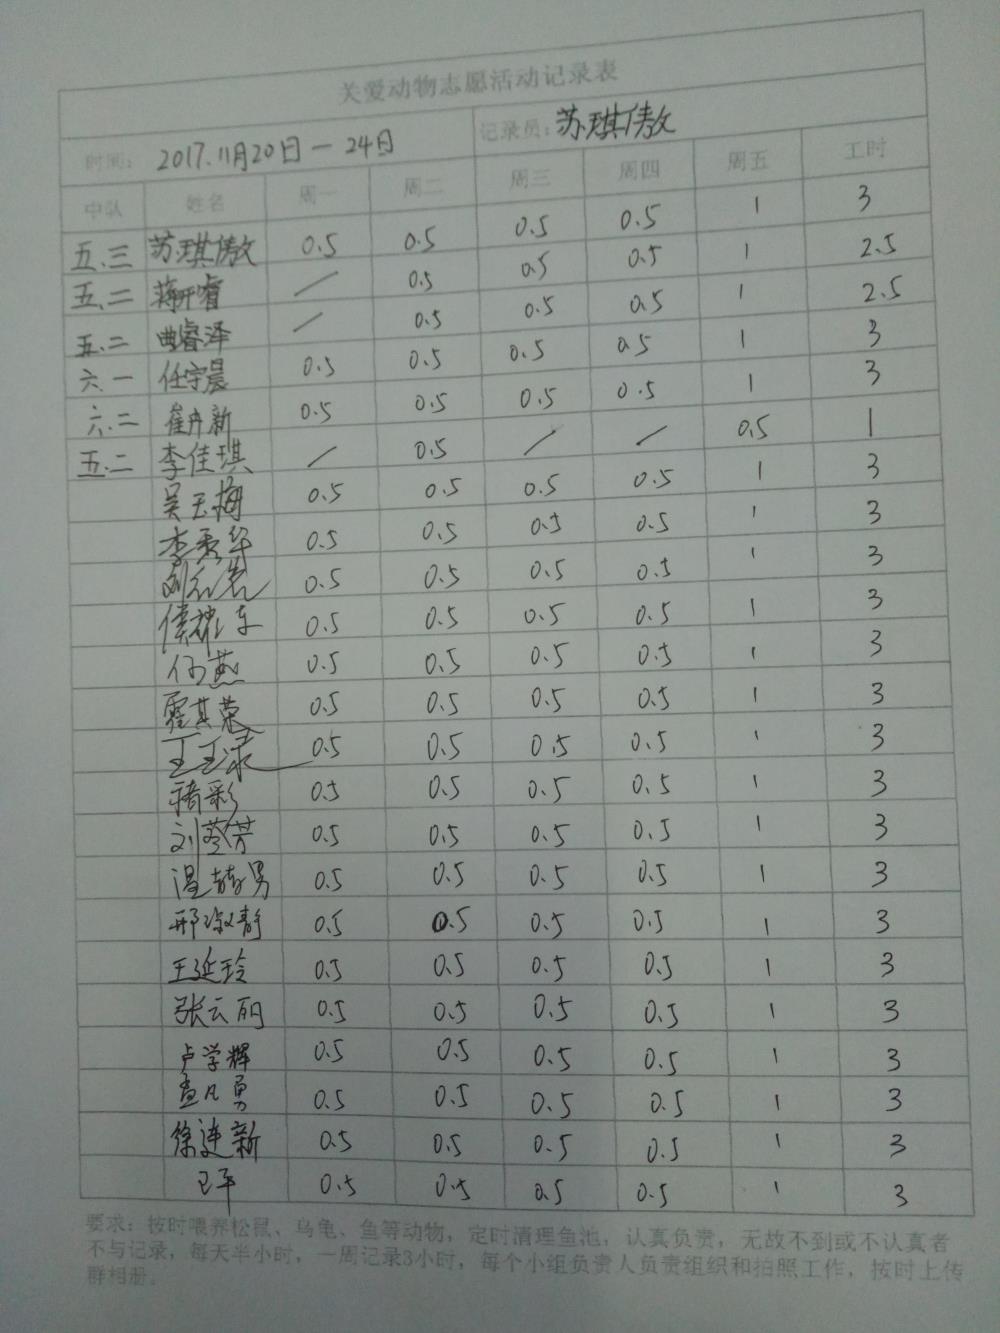 关爱动物志愿活动记录表
时间： 2017.11月20日－24日 记录员：苏琪傲
中队 姓名 周一 周二 周三 周四 周五 工时
五.三 苏琪傲 0.5 0.5 0.5 0.5 1 3
五.二 蒋开睿 / 0.5 0.5 0.5 1 2.5
五.二 曲睿泽 / 0.5 0.5 0.5 1 2.5
六.一 任宇晨 0.5 0.5 0.5 0.5 1 3
六.二 崔冉新 0.5 0.5 0.5 0.5 1 3
五.二 李佳琪 / 0.5 / / 0.5 1
吴玉梅 0.5 0.5 0.5 0.5 1 3
李秀华 0.5 0.5 0.5 0.5 1 3
0.5 0.5 0.5 0.5 1 3
0.5 0.5 0.5 0.5 1 3
0.5 0.5 0.5 0.5 1 3
霍其荣 0.5 0.5 0.5 0.5 1 3
王玉录 0.5 0.5 0.5 0.5 1 3
0.5 0.5 0.5 0.5 1 3
0.5 0.5 0.5 0.5 1 3
0.5 0.5 0.5 0.5 1 3
邢淑静 0.5 0.5 0.5 0.5 1 3
王延玲 0.5 0.5 0.5 0.5 1 3
张云丽 0.5 0.5 0.5 0.5 1 3
卢学辉 0.5 0.5 0.5 0.5 1 3
0.5 0.5 0.5 0.5 1 3
徐连新 0.5 0.5 0.5 0.5 1 3
王平 0.5 0.5 0.5 0.5 1 3
要求：按时喂养松鼠、乌龟、鱼等动物，定时清理鱼池，认真负责，无故不到或不认真者
不与记录，每天半小时，一周记录3小时，每个小组负责人负责组织和拍照工作，按时上传
群相册。